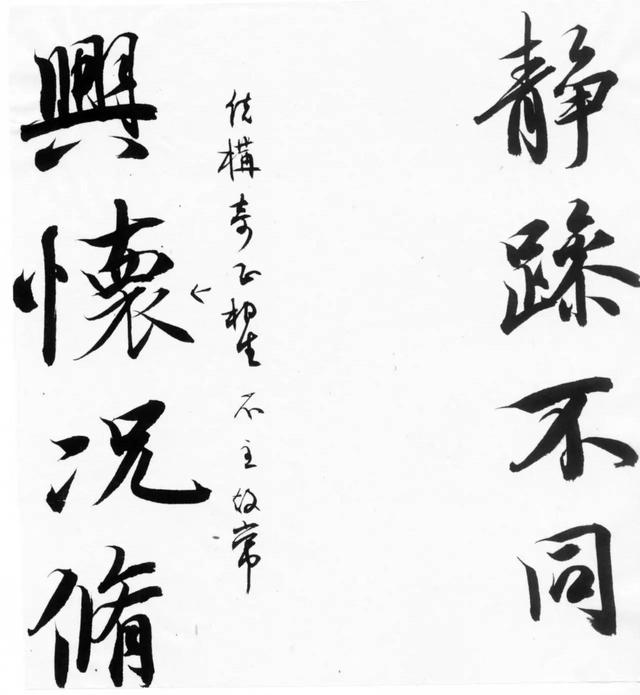 静躁不同
结構奇正相生 不主故常
興懷况脩